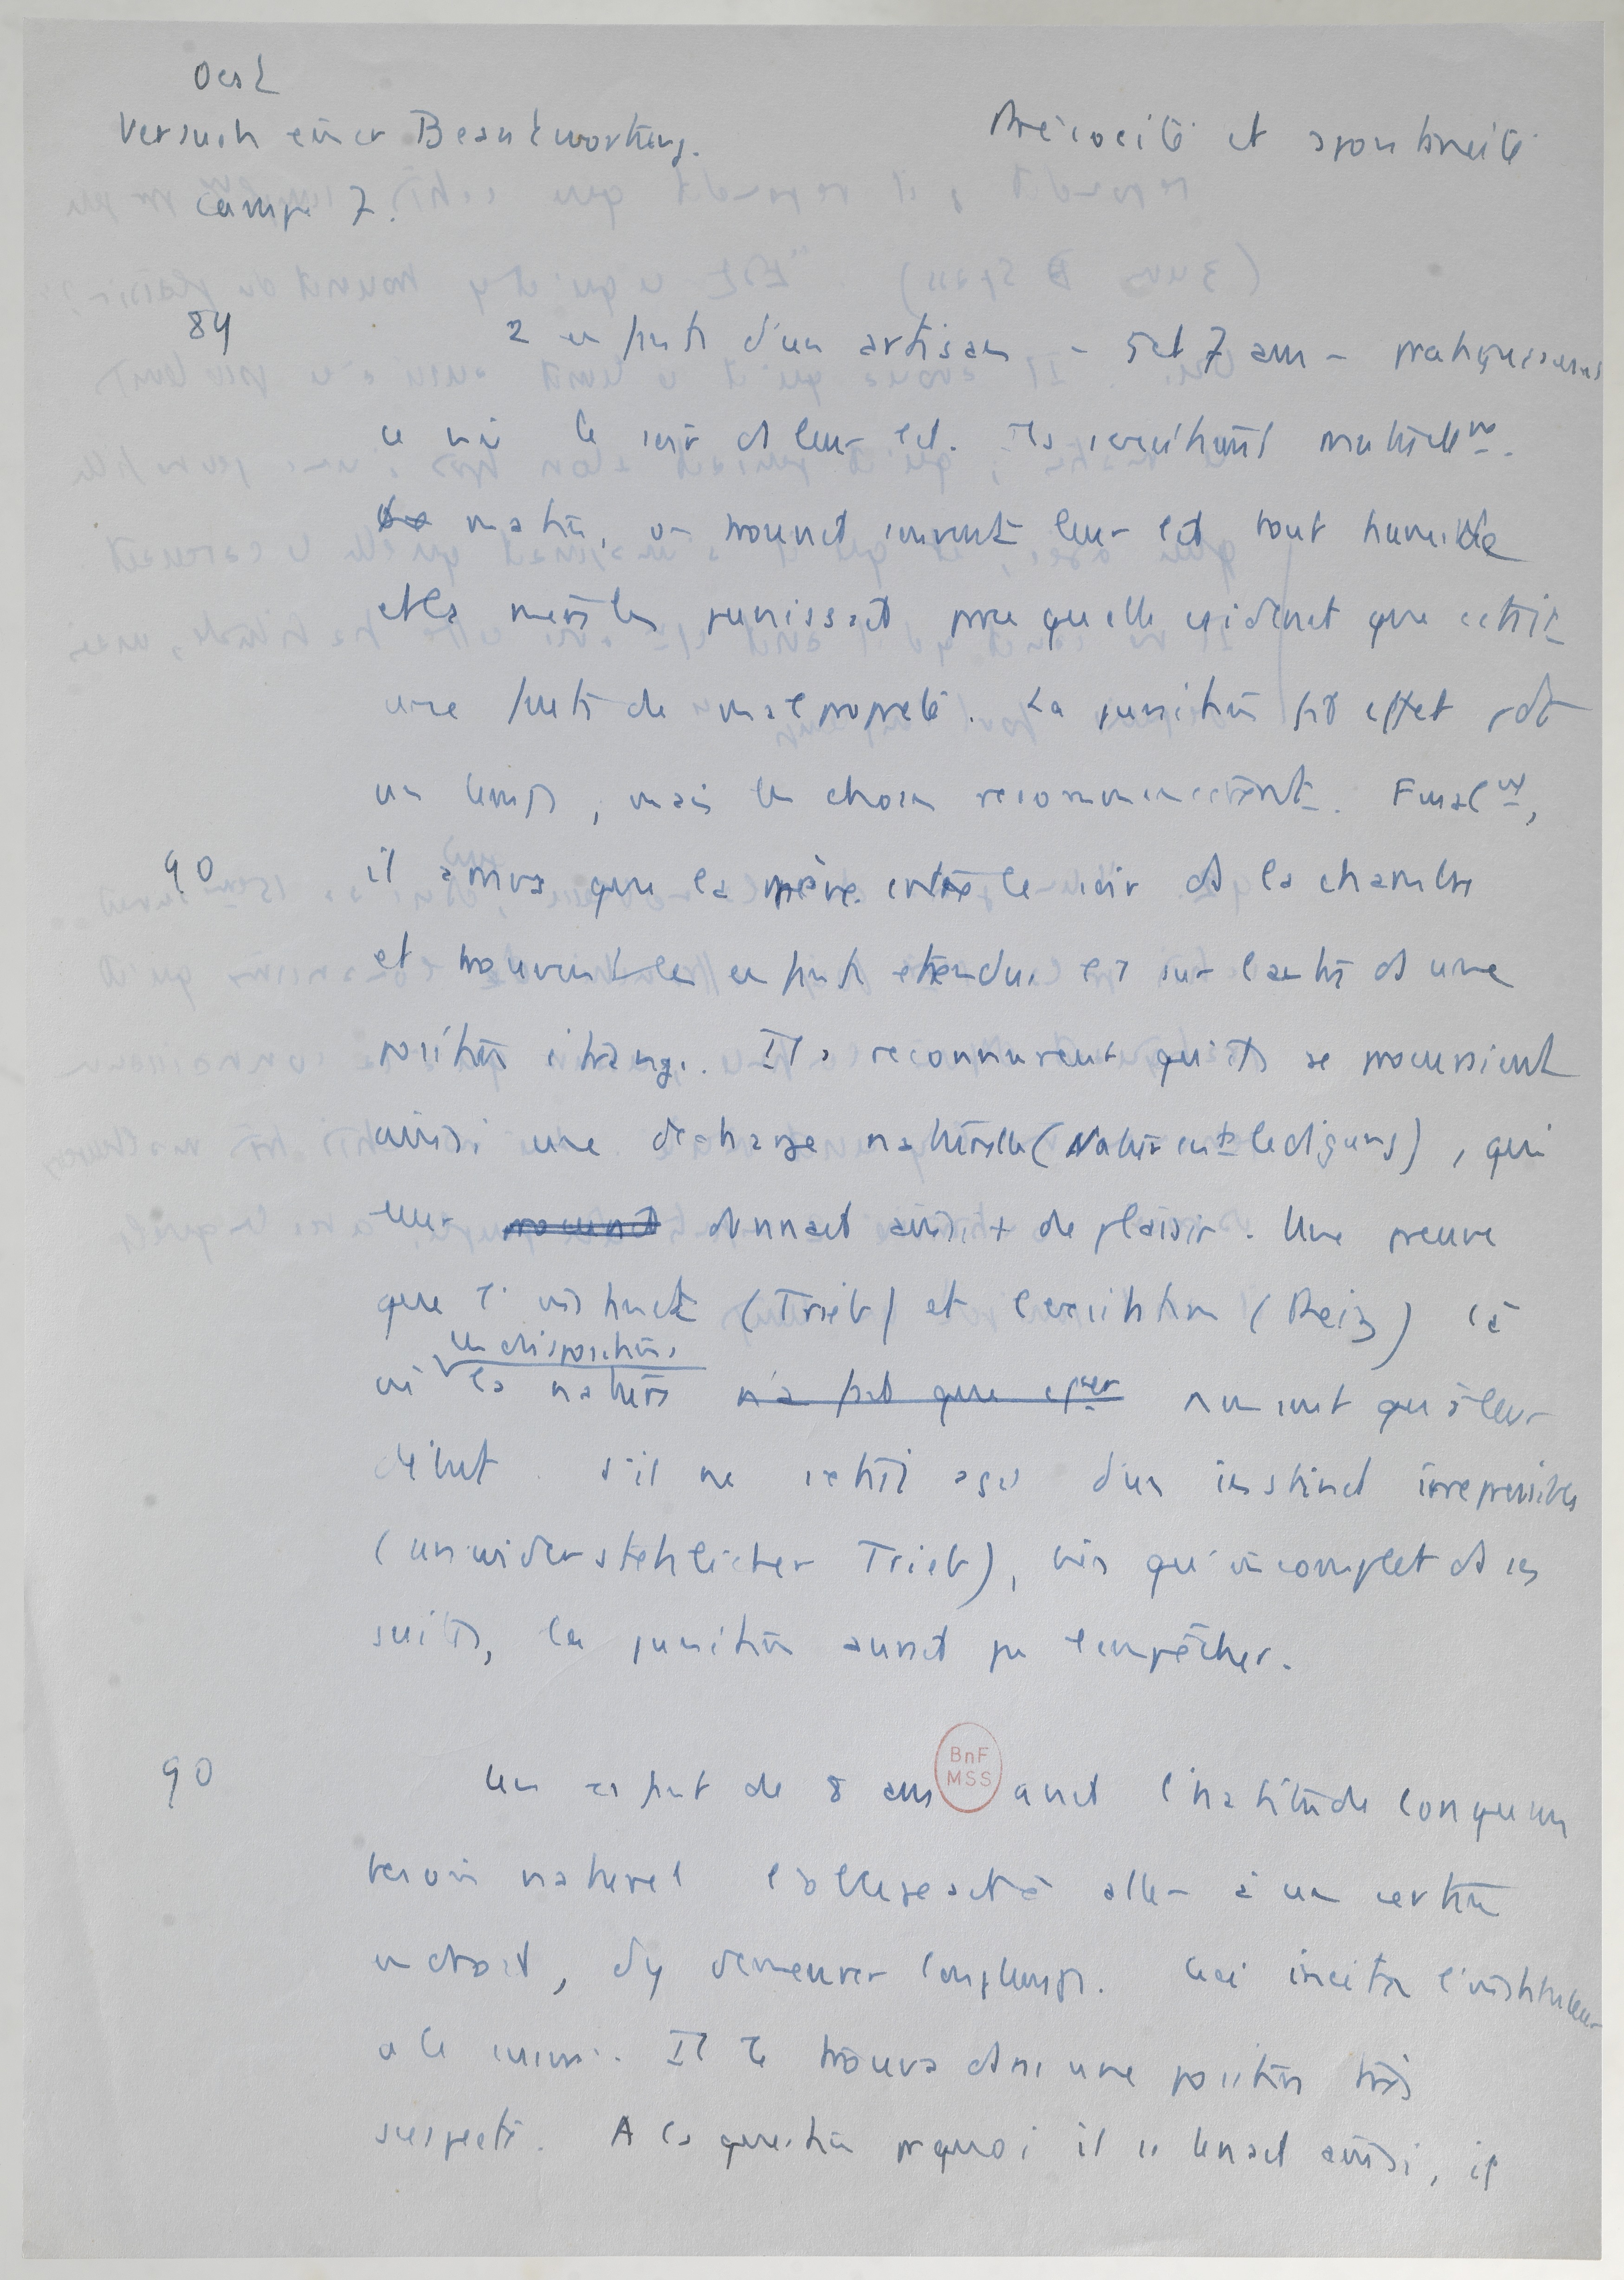 Oest
Versuch einer Beantwortung. Précocité et spontanéité
Campe 7.
89 2 enfants d'un artisan - 5 et 7 ans - pratiquaient
ce vice le soir ds leur lit. Ils s'excitaient mutuellmt.
matin, on trouvait souvent leur lit tout humide
et la mère les punissait parce qu'elle croyait que c'était
une faute de malpropreté. La punition fit effet pdt
un temps, mais les choses recommencèrent. Finalmt,
90 il arriva que la mère entra le soir ds la chambre
et trouvant les enfants étendus l'1 sur l'autre ds une
position étrange. Ils reconnurent qu'ils se procuraient
ainsi une décharge naturelle (Naturentledigung), qui
leur procurait donnait aussi + de plaisir. Une preuve
que l'instinct (Trieb) et l'excitation (Reiz) là
où les dispositions la nature n'a fait que n'en sont qu'à leur
début. S'il ne s'était agi d'un instinct irrépressible
(unwiderstehlicher Trieb), bien qu'incomplet ds ses
suites, la punition aurait pu l'empêcher.
90 Un enfant de 8 ans avait l'habitude lorsqu'un
BnF
MSS
besoin naturel l'obligeait à aller à un certain
endroit, d'y demeurer longtemps. Ceci incita l'instituteur
à le suivre. Il le trouva dans une position très
suspecte. A la question pquoi il se tenait ainsi, il